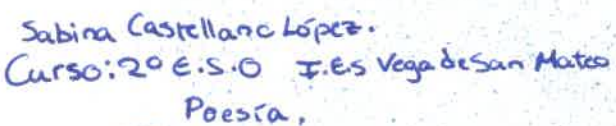 Sabina Castellano López.
Curso: 2º E.S.O I.E.S Vega de San Mateo
Poesía.